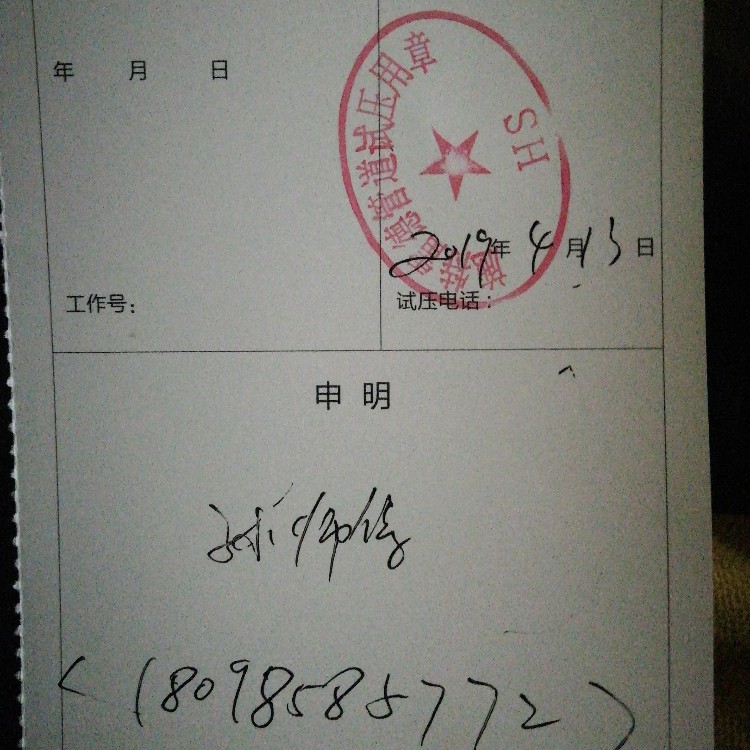 年 月 日
施特曼德管道试压用章
SH
2019年4月13日
工作号:
试压电话:
申明
孙师傅
(18098585772)